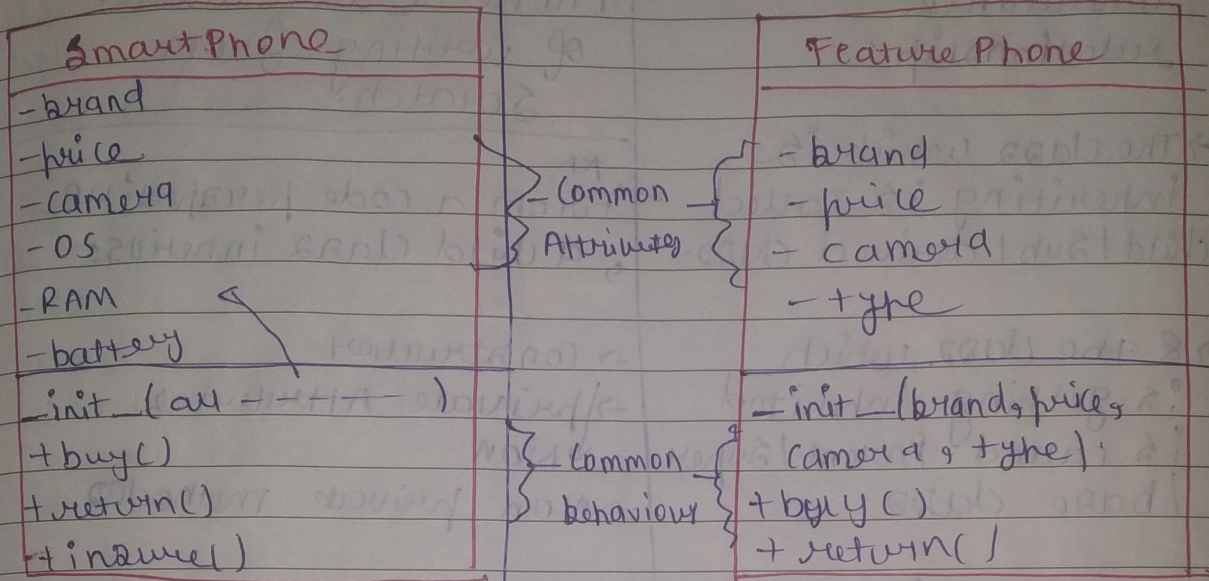 SmartPhone
- brand
- price
- camera
- OS
- RAM
- battery
_init_(all - - - - - )
+ buy()
+ return()
+ insure()
- Common
Attributes
- Common
behaviour
Feature Phone
- brand
- price
- camera
- type
_init_(brand, price,
camera, type)
+ buy()
+ return()